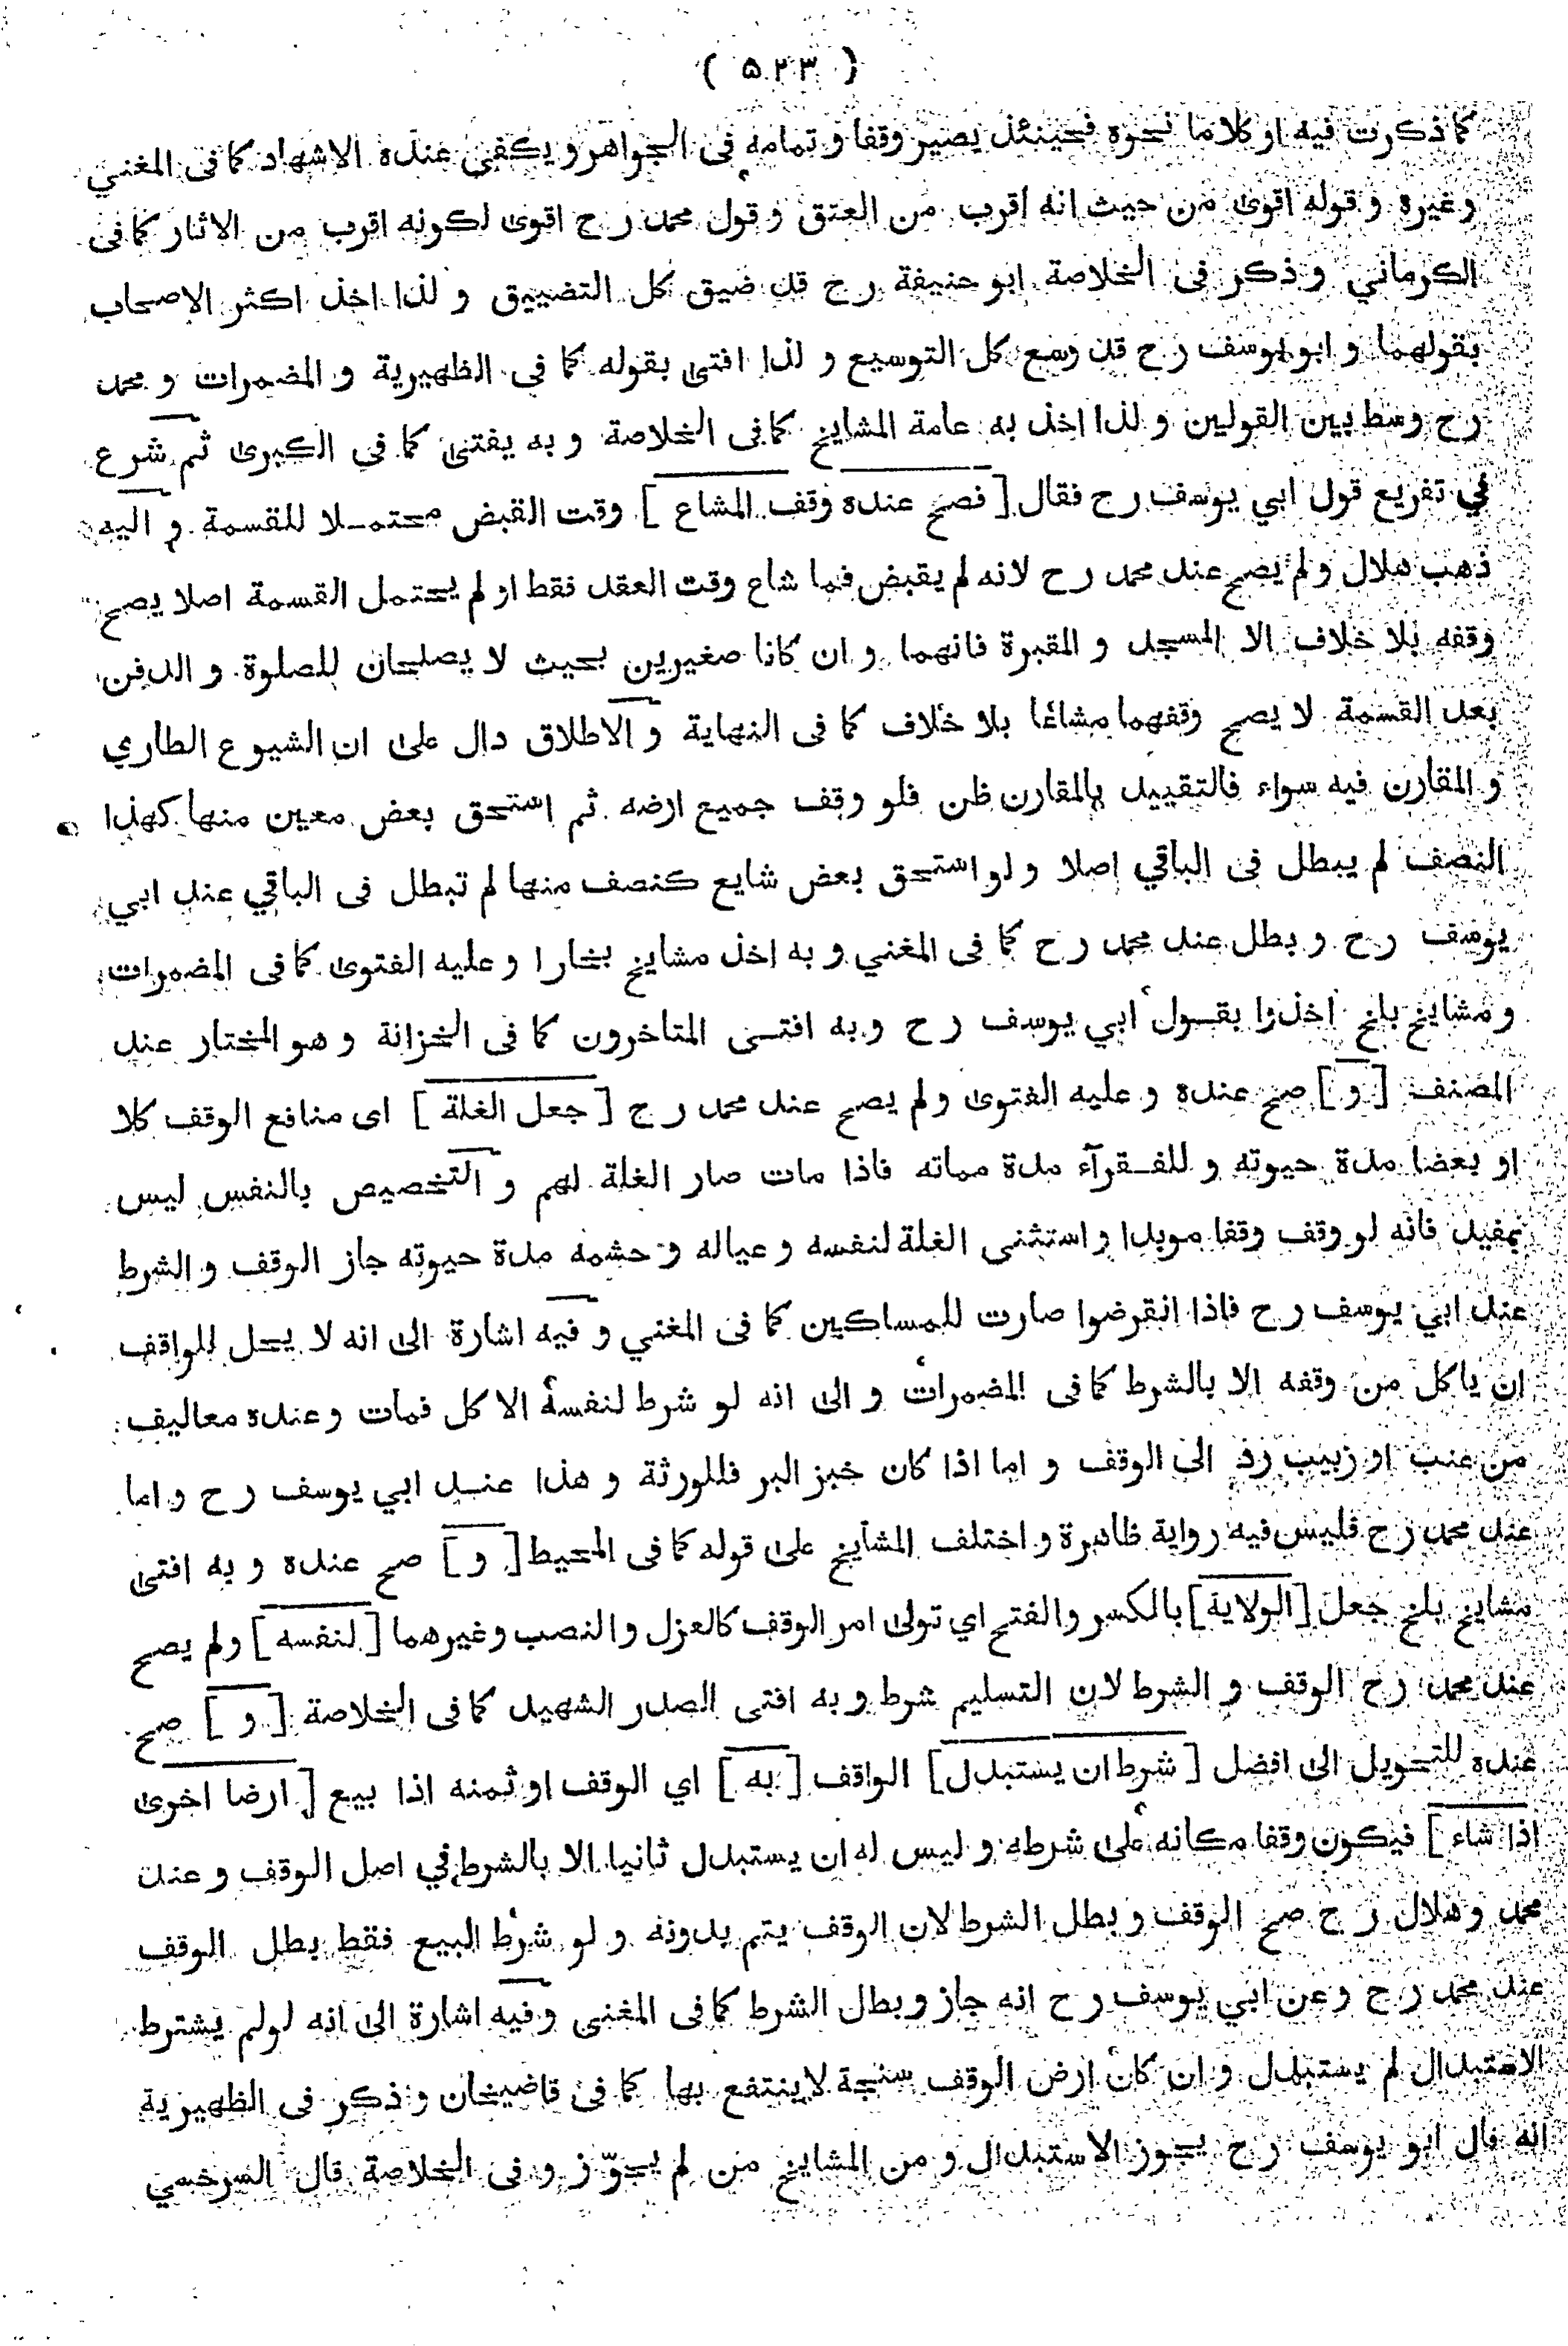 ( ۵۲۳ )
كما ذكرت فيه او كلاما نحوه فحينئذ يصير وقفا و تمامه فى الجواهر و يكفى عنده الاشهاد كما فى المغني
و غيره و قوله اقوى من حيث انه اقرب من العتق و قول محمد رح اقوى لكونه اقرب من الاثار كما فى
الكرماني و ذكر فى الخلاصة ابو حنيفة رح قد ضيق كل التضييق و لذا اخذ اكثر الاصحاب
بقولهما و ابو يوسف رح قد وسع كل التوسيع و لذا افتى بقوله كما فى الظهيرية و المضمرات و محمد
رح وسط بين القولين و لذا اخذ به عامة المشايخ كما فى الخلاصة و به يفتى كما في الكبرى ثم شرع
في تفريع قول ابي يوسف رح فقال [ فصح عنده وقف المشاع ] وقت القبض محتمـلا للقسمة و اليه
ذهب هلال و لم يصح عند محمد رح لانه لم يقبض فما شاع وقت العقد فقط او لم يحتمل القسمة اصلا يصح
وقفه بلا خلاف الا المسجد و المقبرة فانهما و ان كانا صغيرين بحيث لا يصلحان للصلوة و الدفن
بعد القسمة لا يصح وقفهما مشاعا بلا خلاف كما فى النهاية و الاطلاق دال على ان الشيوع الطاري
و المقارن فيه سواء فالتقييد بالمقارن ظن فلو وقف جميع ارضه ثم استحق بعض معين منها كهذا
النصف لم يبطل فى الباقي اصلا و لو استحق بعض شايع كنصف منها لم تبطل فى الباقي عند ابي
يوسف رح و بطل عند محمد رح كما فى المغني و به اخذ مشايخ بخارا و عليه الفتوى كما فى المضمرات
و مشايخ بلخ اخذوا بقـول ابي يوسف رح و به افتـى المتاخرون كما فى الخزانة و هو المختار عند
المصنف [ و ] صح عنده و عليه الفتوى و لم يصح عند محمد رح [ جعل الغلة ] اى منافع الوقف كلا
او بعضا مدة حيوته و للفـقرآء مدة مماته فاذا مات صار الغلة لهم و التخصيص بالنفس ليس
بمفيد فانه لو وقف وقفا موبدا و استثنى الغلة لنفسه و عياله و حشمه مدة حيوته جاز الوقف و الشرط
عند ابي يوسف رح فاذا انقرضوا صارت للمساكين كما فى المغني و فيه اشارة الى انه لا يحل للواقف
ان ياكل من وقفه الا بالشرط كما فى المضمرات و الى انه لو شرط لنفسه الا كل فمات و عنده معاليف
من عنب او زبيب رد الى الوقف و اما اذا كان خبز البر فللورثة و هذا عنـد ابي يوسف رح و اما
عند محمد رح فليس فيه رواية ظاهرة و اختلف المشايخ على قوله كما فى المحيط [ و ] صح عنده و به افتى
مشايخ بلخ جعل [ الولاية ] بالكسر والفتح اي تولى امر الوقف كالعزل و النصب وغيرهما [ لنفسه ] ولم يصح
عند محمد رح الوقف و الشرط لان التسليم شرط و به افتى الصدر الشهيد كما فى الخلاصة [ و ] صح
عنده للتحويل الى افضل [ شرط ان يستبدل ] الواقف [ به ] اي الوقف او ثمنه اذا بيع [ ارضا اخرى
اذا شاء ] فيكون وقفا مكانه على شرطه و ليس له ان يستبدل ثانيا الا بالشرط في اصل الوقف و عند
محمد و هلال رح صح الوقف و بطل الشرط لان الوقف يتم بدونه و لو شرط البيع فقط بطل الوقف
عند محمد رح و عن ابي يوسف رح انه جاز و بطل الشرط كما فى المغنى و فيه اشارة الى انه لو لم يشترط
الاستبدال لم يستبدل و ان كان ارض الوقف سنجة لا ينتفع بها كما فى قاضيخان و ذكر فى الظهيرية
انه قال ابو يوسف رح يجوز الاستبدال و من المشايخ من لم يجوّز و فى الخلاصة قال السرخسي